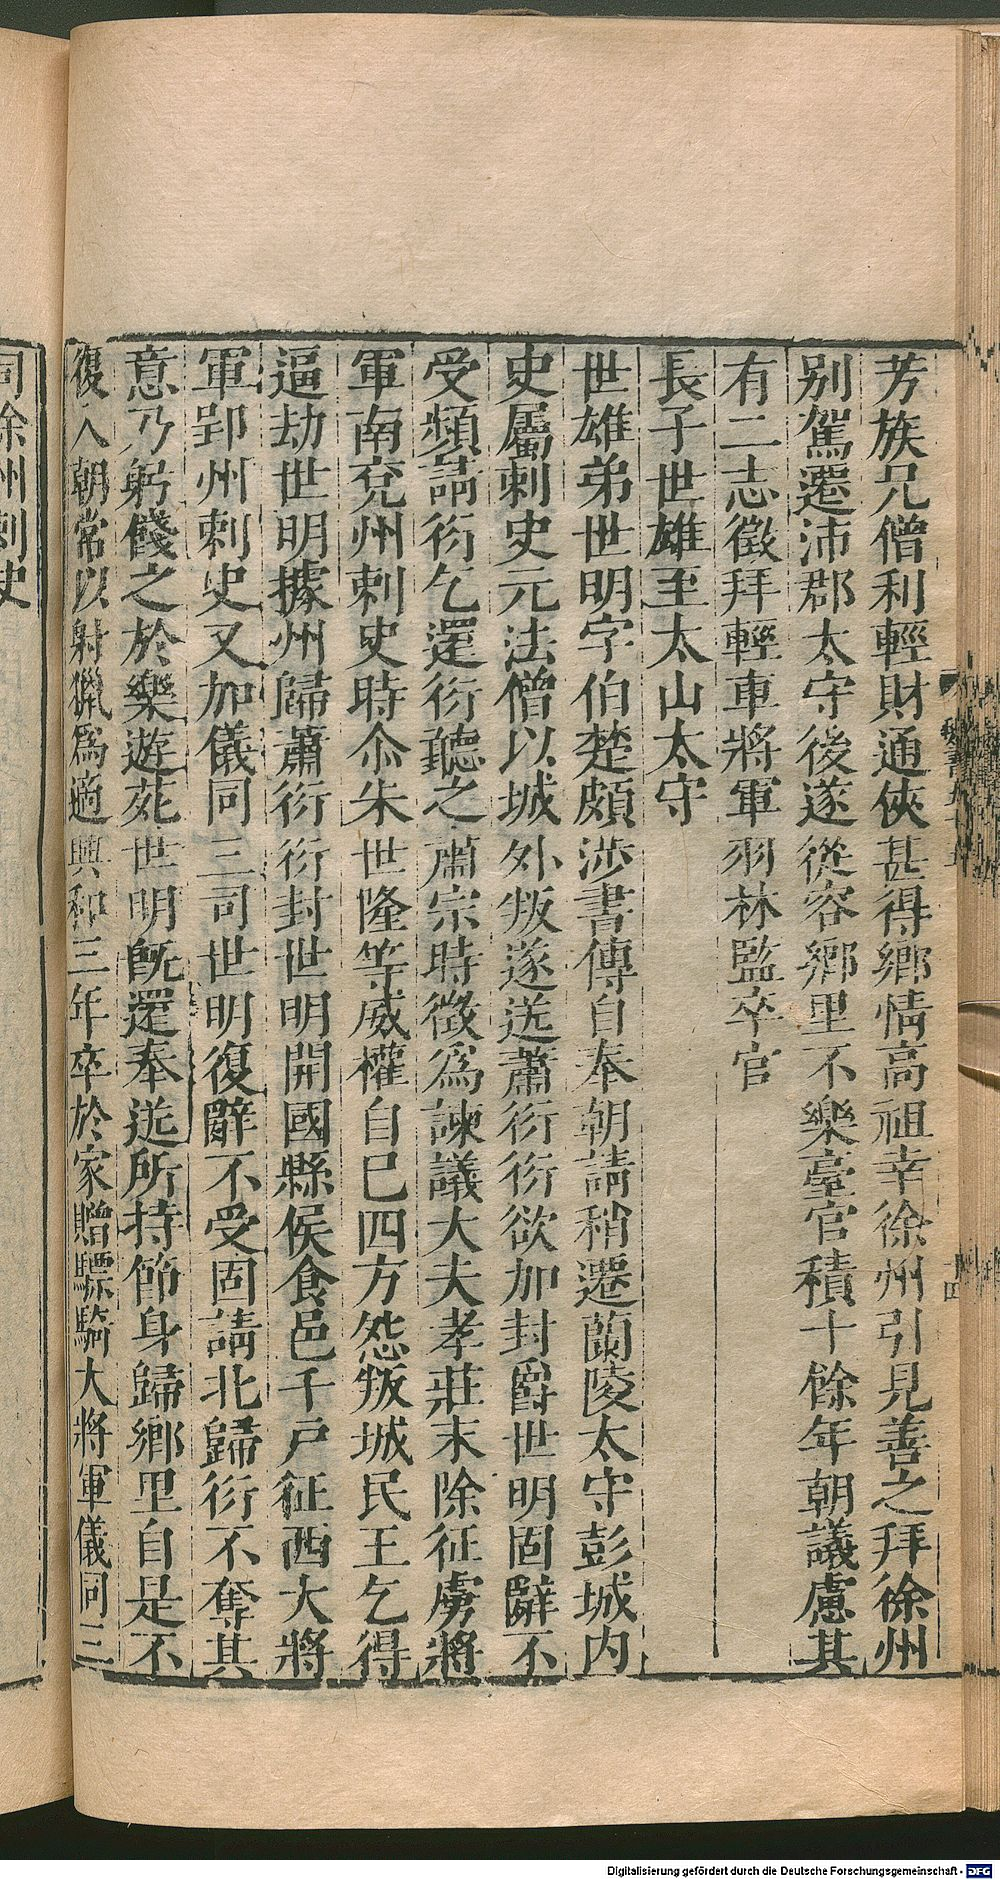 芳族兄僧利輕財通俠甚得鄉情高祖幸徐州引見善之拜徐州
別駕遷沛郡太守後遂從容鄉里不樂臺官積十餘年朝議慮其
有二志徵拜輕車將軍羽林監卒官
長子世雄至太山太守
世雄弟世明字伯楚頗涉書傳自奉朝請稍遷蘭陵太守彭城内
史屬刺史元法僧以城外叛遂送蕭衍衍欲加封爵世明固辭不
受頻請衍乞還衍聽之肅宗時徵爲諫議大夫孝莊末除征虜將
軍南兖州刺史時尒朱世隆等威權自己四方怨叛城民王乞得
逼劫世明據州歸蕭衍衍封世明開國縣侯食邑千戸征西大將
軍郢州刺史又加儀同三司世明復辭不受固請北歸衍不奪其
意乃躬餞之於樂遊苑世明旣還奉送所持節身歸鄉里自是不
復入朝常以射獵爲適興和三年卒於家贈驃騎大將軍儀同三
同徐州刺史
Digitalisierung gefördert durch die Deutsche Forschungsgemeinschaft - DFG